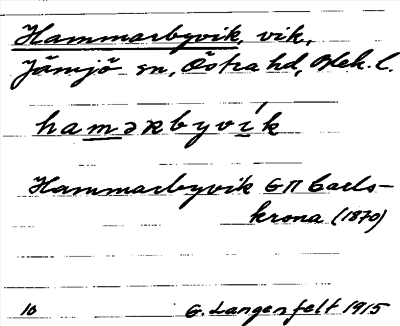 Hammarbyvik, vik,
Jämjö sn, Östra hd, Blek. l.
haməʀbyvík
Hammarbyvik GП Carls-
krona (1870)
10 G. Langenfelt 1915